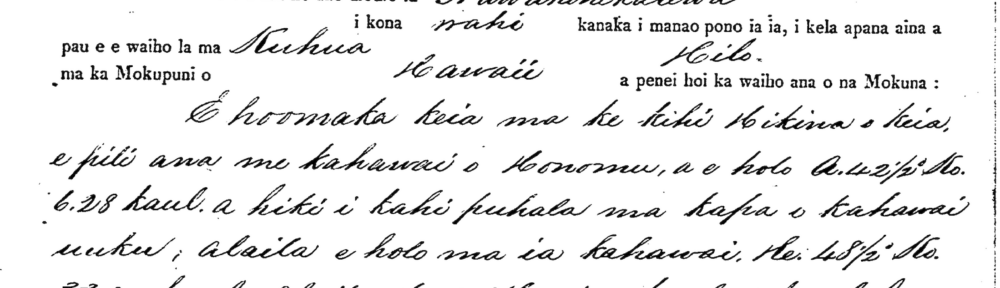 i kona wahi kanaka i manao pono ia ia, i kela apana aina a
pau e e waiho la ma Kuhua Hilo.
ma ka Mokupuni o Hawaii a penei hoi ka waiho ana o na Mokuna :
E hoomaka keia ma ke kihi Hikina o keia,
e pili ana me kahawai o Honomu, a e holo A. 42 1/2° Ko.
6.28 kaul. a hiki i kahi puhala ma kapa o kahawai
uuku ; alaila e holo ma ia kahawai. He. 48 1/2° Ko.